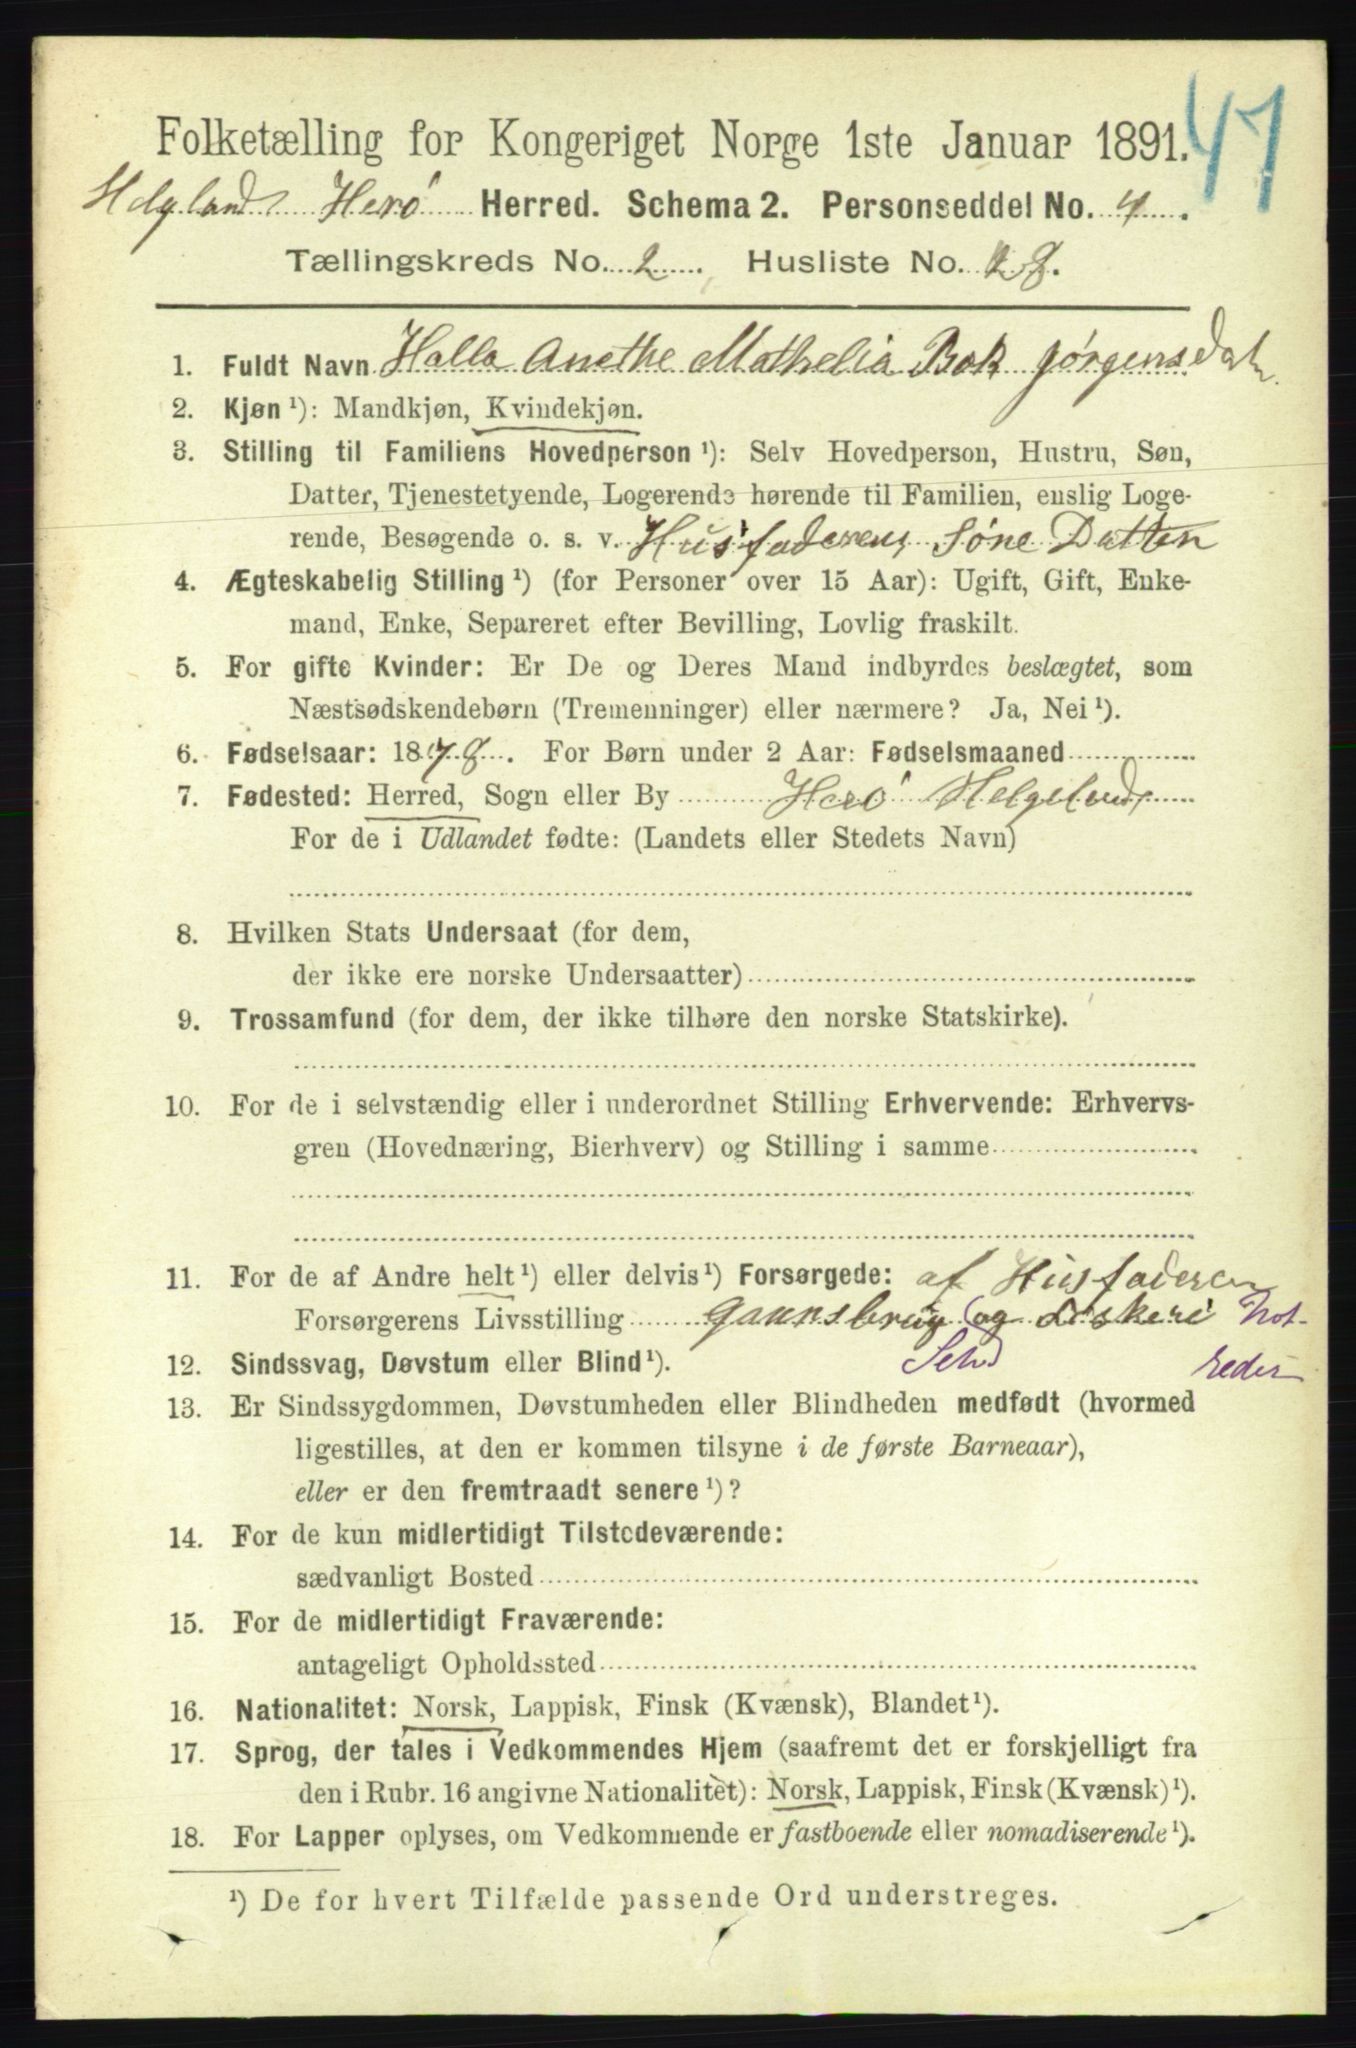 47
Folketælling for Kongeriget Norge 1ste Januar 1891.
Helgeland Herø Herred. Schema 2. Personseddel No. 4.
Tællingskreds No. 2. Husliste No. 28.
1. Fuldt Navn Halla Anethe Mathelia Bok Jørgensdat
2. Kjøn ¹): Mandkjøn, Kvindekjøn.
3. Stilling til Familiens Hovedperson ¹): Selv Hovedperson, Hustru, Søn,
Datter, Tjenestetyende, Logerende hørende til Familien, enslig Loge-
rende, Besøgende o. s. v. Husfaderens Søne Datter
4. Ægteskabelig Stilling ¹) (for Personer over 15 Aar): Ugift, Gift, Enke-
mand, Enke, Separeret efter Bevilling, Lovlig fraskilt.
5. For gifte Kvinder: Er De og Deres Mand indbyrdes beslægtet, som
Næstsødskendebørn (Tremenninger) eller nærmere? Ja, Nei ¹).
6. Fødselsaar: 1878. For Børn under 2 Aar: Fødselsmaaned
7. Fødested: Herred, Sogn eller By Herø Helgeland
For de i Udlandet fødte: (Landets eller Stedets Navn)
8. Hvilken Stats Undersaat (for dem,
der ikke ere norske Undersaatter)
9. Trossamfund (for dem, der ikke tilhøre den norske Statskirke).
10. For de i selvstændig eller i underordnet Stilling Erhvervende: Erhvervs-
gren (Hovednæring, Bierhverv) og Stilling i samme
11. For de af Andre helt ¹) eller delvis ¹) Forsørgede: af Husfaderen
Forsørgerens Livsstilling Gaansbrug og Fiskeri Not-
12. Sindssvag, Døvstum eller Blind ¹). Selv reder
13. Er Sindssygdommen, Døvstumheden eller Blindheden medfødt (hvormed
ligestilles, at den er kommen tilsyne i de første Barneaar),
eller er den fremtraadt senere ¹)?
14. For de kun midlertidigt Tilstedeværende:
sædvanligt Bosted
15. For de midlertidigt Fraværende:
antageligt Opholdssted
16. Nationalitet: Norsk, Lappisk, Finsk (Kvænsk), Blandet ¹).
17. Sprog, der tales i Vedkommendes Hjem (saafremt det er forskjelligt fra
den i Rubr. 16 angivne Nationalitet): Norsk, Lappisk, Finsk (Kvænsk) ¹).
18. For Lapper oplyses, om Vedkommende er fastboende eller nomadiserende ¹).
¹) De for hvert Tilfælde passende Ord understreges.